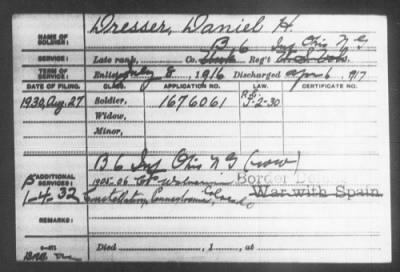 NAME OF SOLDIER: Dresser, Daniel H
B 6 Inf Ohio N G
SERVICE: Late rank, Co. Reg't
TERM OF SERVICE: Enlisted July 8, 1916 Discharged Apr 6, 1917
DATE OF FILING. CLASS. APPLICATION NO. LAW. CERTIFICATE NO.
1930, Aug. 27 Soldier, 1676061 J-2-30
Widow,
Minor,
B 6 Inf Ohio N G (now)
ADDITIONAL SERVICES: 1905-06 Border
1-4-32 Constellation, Pennsylvania, Colorado War with Spain
Died , 1 , at